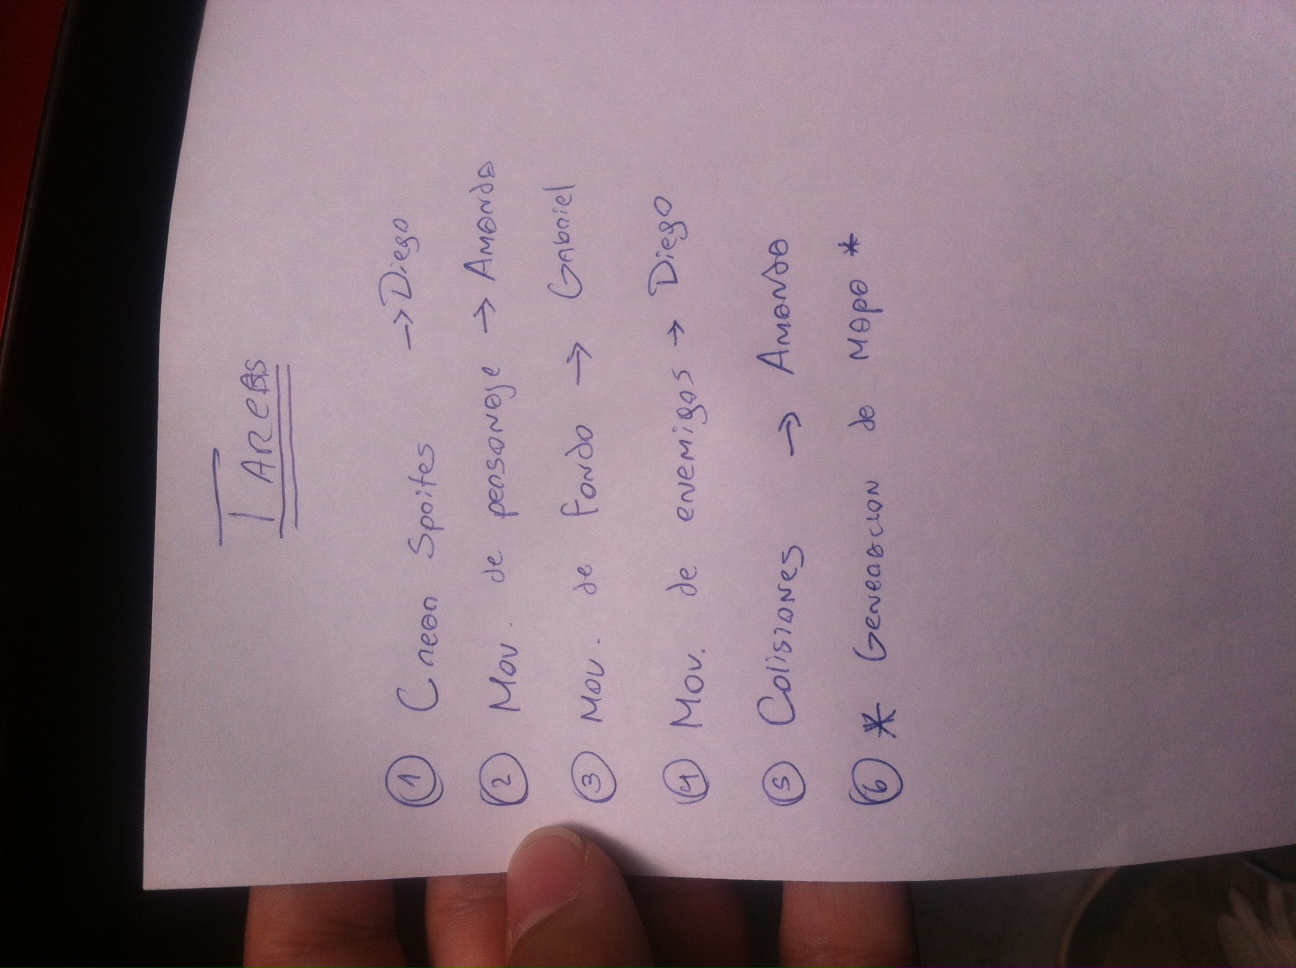 Tareas
1 Crear Sprites → Diego
2 Mov. de personaje → Amanda
3 Mov. de Fondo → Gabriel
4 Mov. de enemigos → Diego
5 Colisiones → Amanda
6 * Generacion de mapa *